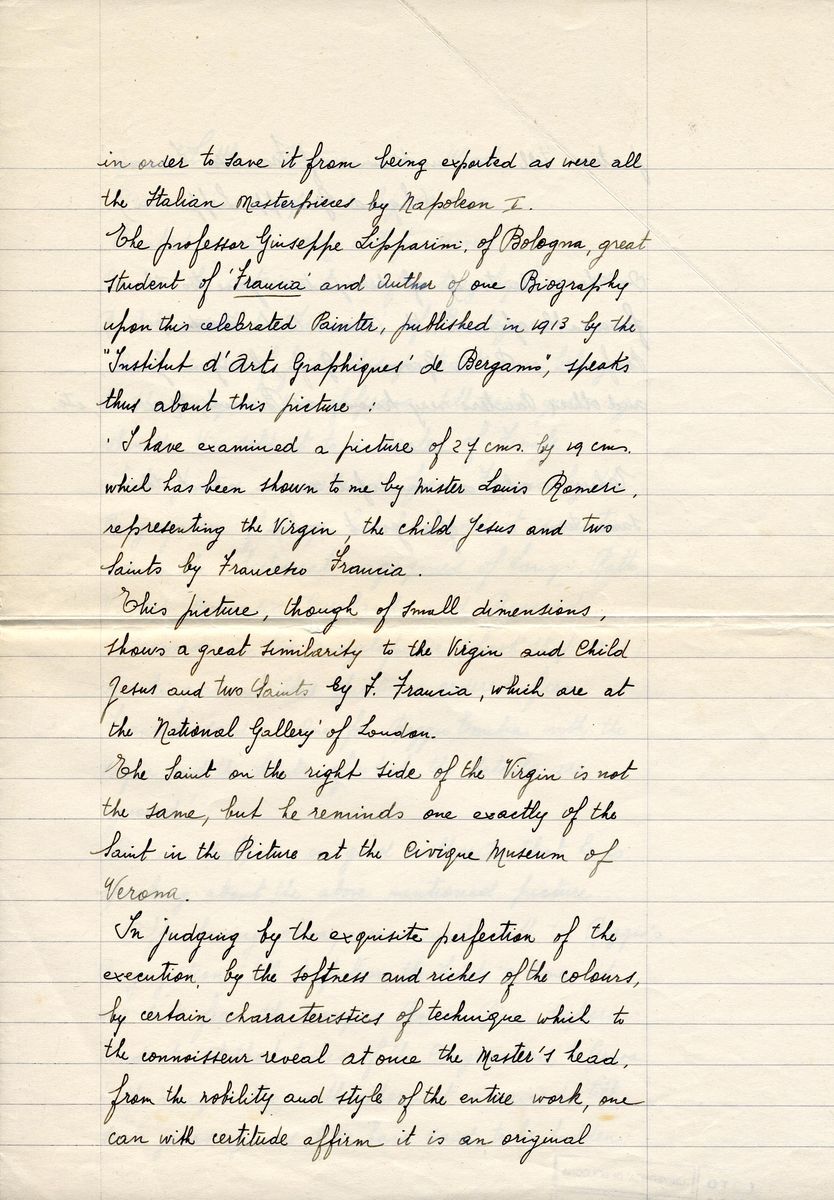 in order to save it from being exported as were all
the Italian Masterpieces by Napoleon I.
The professor Giuseppe Lipparini, of Bologna, great
student of 'Francia' and Author of one Biography
upon this celebrated Painter, published in 1913 by the
"Institut d'Arts Graphiques' de Bergamo", speaks
thus about this picture :
'I have examined a picture of 27 cms. by 19 cms.
which has been shown to me by Mister Louis Romeri,
representing the Virgin, the child Jesus and two
Saints by Francesco Francia.
This picture, though of small dimensions,
shows a great similarity to the Virgin and Child
Jesus and two Saints by F. Francia, which are at
the National Gallery' of London.
The Saint on the right side of the Virgin is not
the same, but he reminds one exactly of the
Saint in the Picture at the Civique Museum of
Verona.
In judging by the exquisite perfection of the
execution, by the softness and riches of the colours,
by certain characteristics of technique which to
the connoisseur reveal at once the Master's head,
from the nobility and style of the entire work, one
can with certitude affirm it is an original